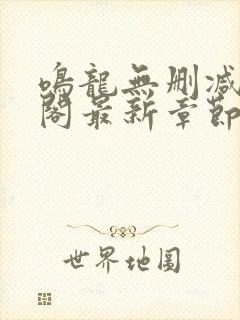 鳴龍無刪減
閣最新章節
世界地圖